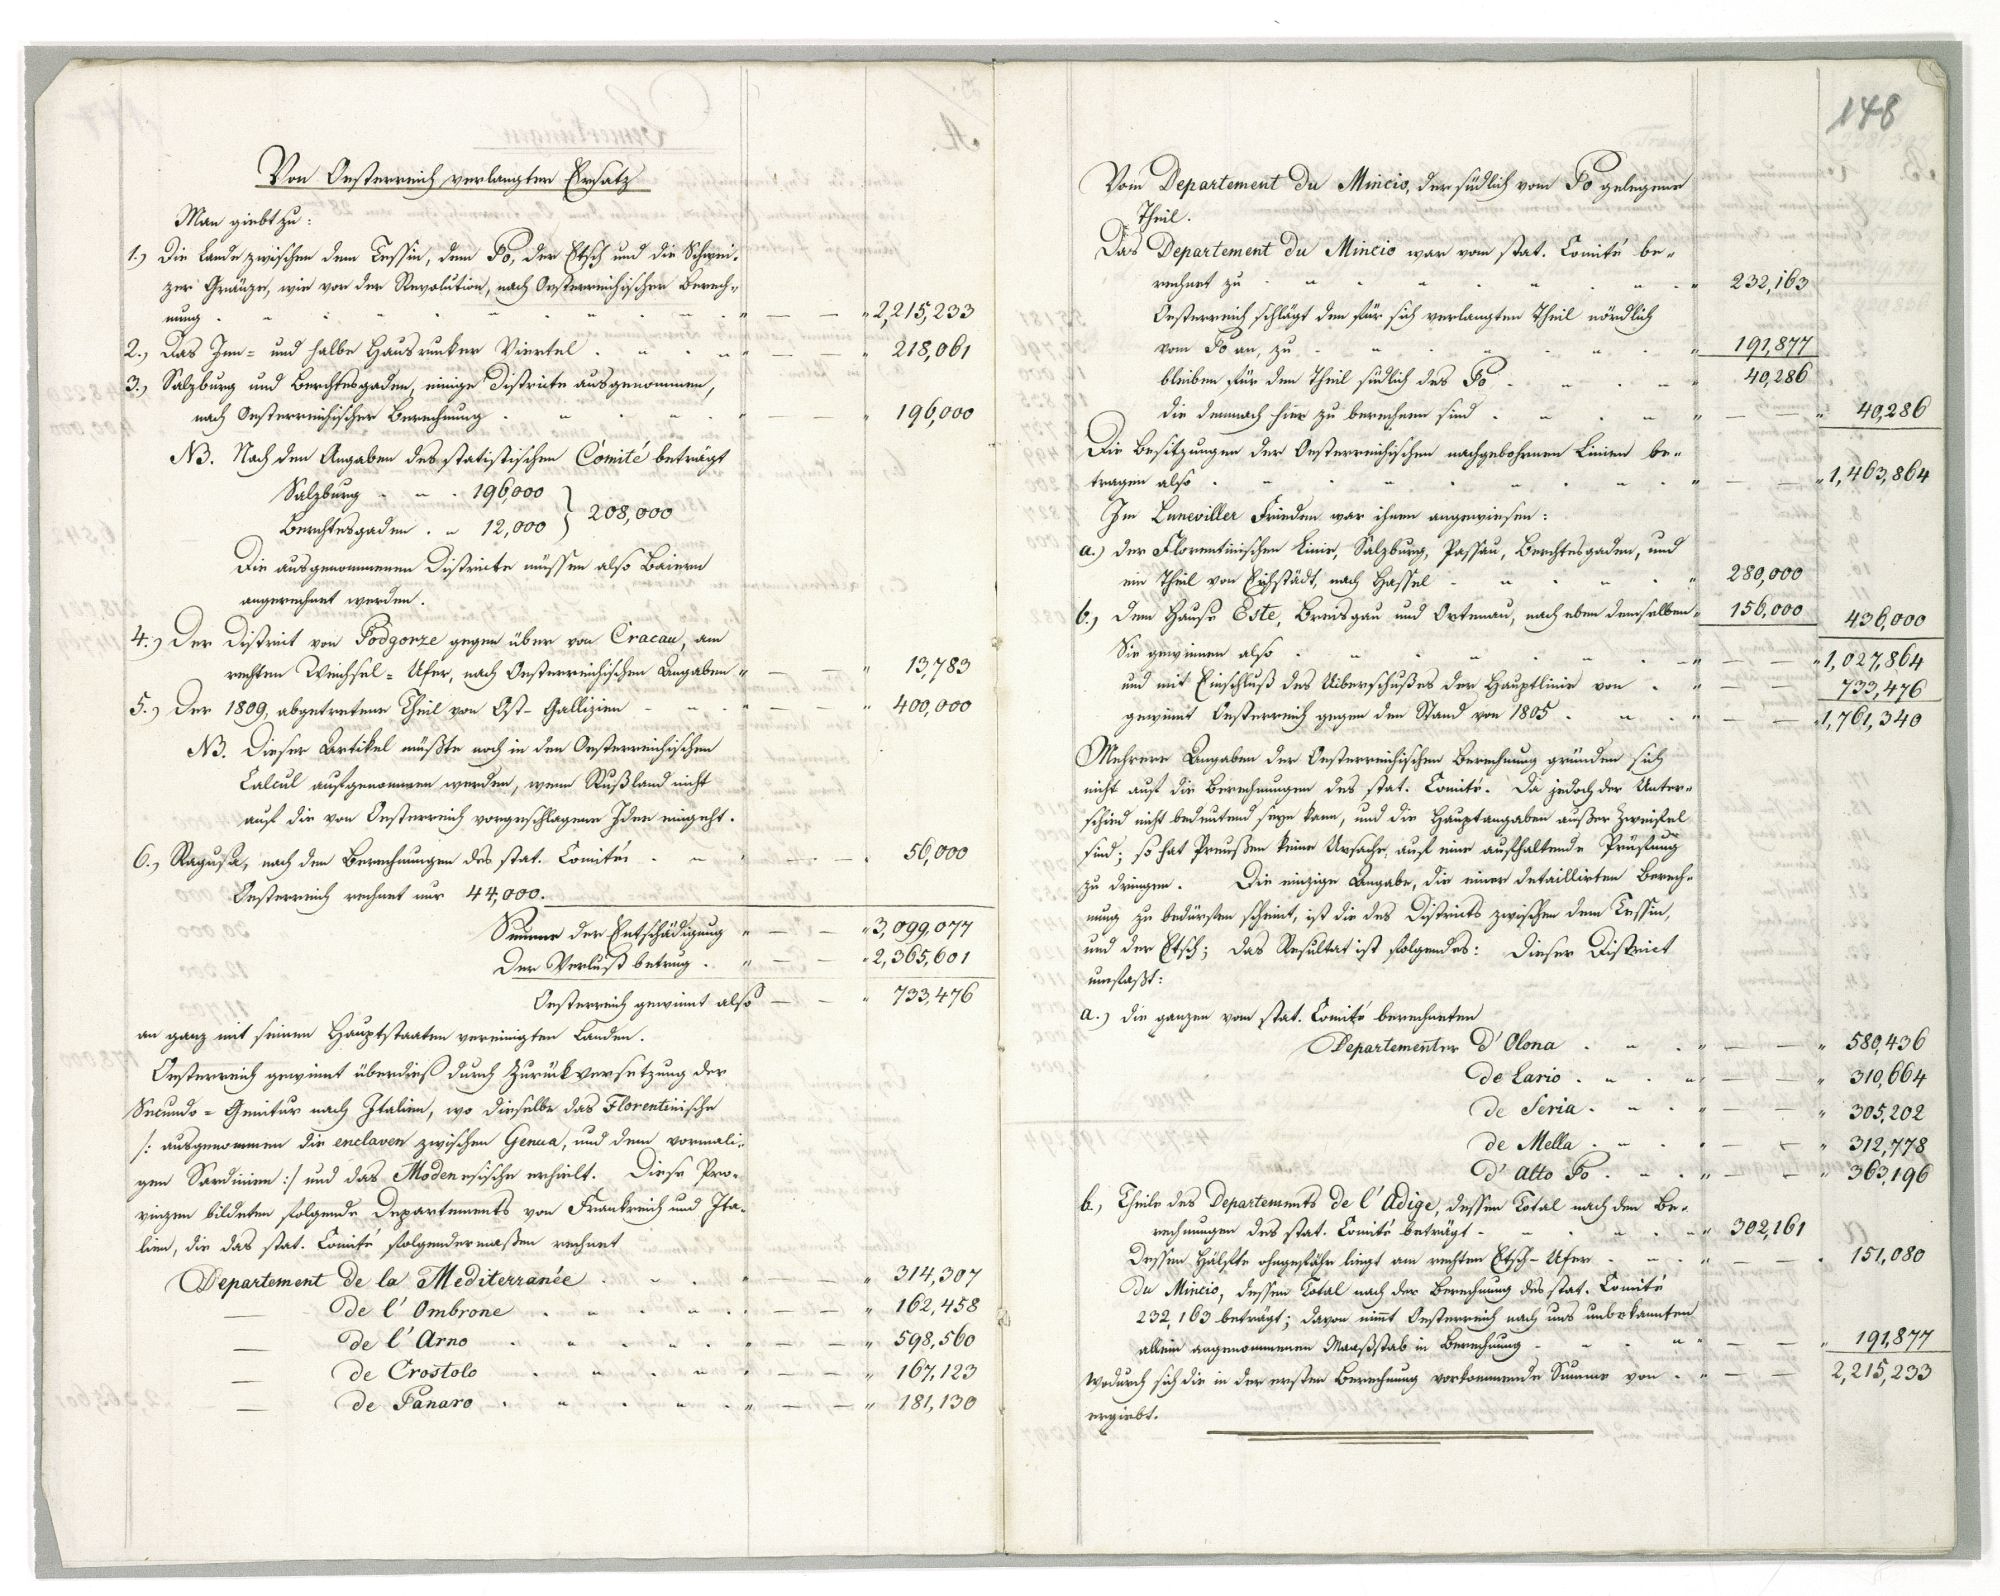 Von Oesterreich verlangter Ersatz
Man giebt zu:
1.) Die Lande zwischen dem Tessin, dem Po, der Etsch und die Schwei-
zer Gränze, wie vor der Revolution, nach Oesterreichischer Berech-
nung 2,215,233
2.) Das Inn- und halbe Hausrucker Viertel 218,061
3.) Salzburg und Berchtesgaden, einige Districte ausgenommen,
nach Oesterreichischer Berechnung 196,000
NB. Nach den Angaben des statistischen Comité beträgt
Salzburg 196,000
Berchtesgaden 12,000 } 208,000
Die ausgenommenen Districte müssen also Baiern
angerechnet werden.
4.) Der District von Podgorze gegen über von Cracau, am
rechten Weichsel-Ufer, nach Oesterreichischen Angaben 13,783
5.) Der 1809, abgetretene Theil von Ost-Gallizien 400,000
NB. Dieser Artikel müßte noch in den Oesterreichischen
Calcul aufgenommen werden, wenn Rußland nicht
auf die von Oesterreich vorgeschlagene Idee eingeht.
6.) Ragusa, nach den Berechnungen des stat. Comités 56,000
Oesterreich rechnet nur 44,000.
Summe der Entschädigung 3,099,077
Der Verlust betrug 2,365,601
Oesterreich gewinnt also 733,476
an ganz mit seinen Hauptstaaten vereinigten Landen.
Oesterreich gewinnt überdieß durch Zurückversetzung der
Secundo-Genitur nach Italien, wo dieselbe das Florentinische
/: ausgenommen die enclaven zwischen Genua, und dem vormali-
gen Sardinien :/ und das Modenesische erhielt. Diese Pro-
vinzen bildeten folgende Departements von Frankreich und Ita-
lien, die das stat. Comité folgendermaßen rechnet
Departement de la Mediterranée 314,307
— de l'Ombrone 162,458
— de l'Arno 598,560
— de Crostolo 167,123
— de Panaro 181,130
148
Vom Departement du Mincio, der südlich vom Po gelegene
Theil.
Das Departement du Mincio war vom stat. Comité be-
rechnet zu 232,163
Oesterreich schlägt den für sich verlangten Theil nördlich
vom Po an, zu 191,877
bleiben für den Theil südlich des Po 40,286
die demnach hier zu berechnen sind 40,286
Die Besitzungen der Oesterreichischen nachgebohrnen Linien be-
tragen also 1,463,864
Im Luneviller Frieden war ihnen angewiesen:
a.) der Florentinischen Linie, Salzburg, Passau, Berchtesgaden, und
ein Theil von Eichstädt, nach Hassel 280,000
b.) dem Hause Este, Breisgau und Ortenau, nach eben demselben 156,000 436,000
Sie gewinnen also 1,027,864
und mit Einschluß des Ueberschußes der Hauptlinie von 733,476
gewinnt Oesterreich gegen den Stand von 1805 1,761,340
Mehrere Angaben der Oesterreichischen Berechnung gründen sich
nicht auf die Berechnungen des stat. Comité. Da jedoch der Unter-
schied nicht bedeutend seyn kann, und die Hauptangaben außer Zweifel
sind; so hat Preußen keine Ursache, auf eine aufhaltende Prüfung
zu dringen. Die einzige Angabe, die einer detaillirten Berech-
nung zu bedürfen scheint, ist die des Districts zwischen dem Tessin,
und der Etsch; das Resultat ist folgendes: Dieser District
umfaßt:
a.) die ganzen vom stat. Comité berechneten
Departementer d'Olona 580,436
de Lario 310,664
de Seria 305,202
de Mella 312,778
d'alto Po 363,196
b.) Theile des Departements de l'Adige, dessen Total nach den Be-
rechnungen des stat. Comité beträgt 302,161
dessen Hälfte ohngefähr liegt am rechten Etsch-Ufer 151,080
du Mincio, dessen Total nach der Berechnung des stat. Comité
232,163 beträgt; davon nimmt Oesterreich nach uns unbekannten
allein angenommenen Maaßstab in Berechnung 191,877
wodurch sich die in der ersten Berechnung vorkommende Summe von 2,215,233
ergiebt.